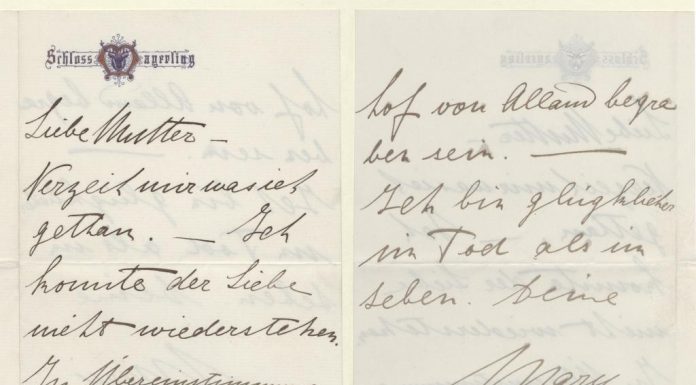 Schloss Mayerling
Liebe Mutter –
Verzeit mir was ich
gethan. – Ich
konnte der Liebe
nicht wiederstehen.
In Übereinstimmung
hof von Alland begra
ben sein. —
Ich bin glücklicher
im Tod als im
Leben. Deine
Mary